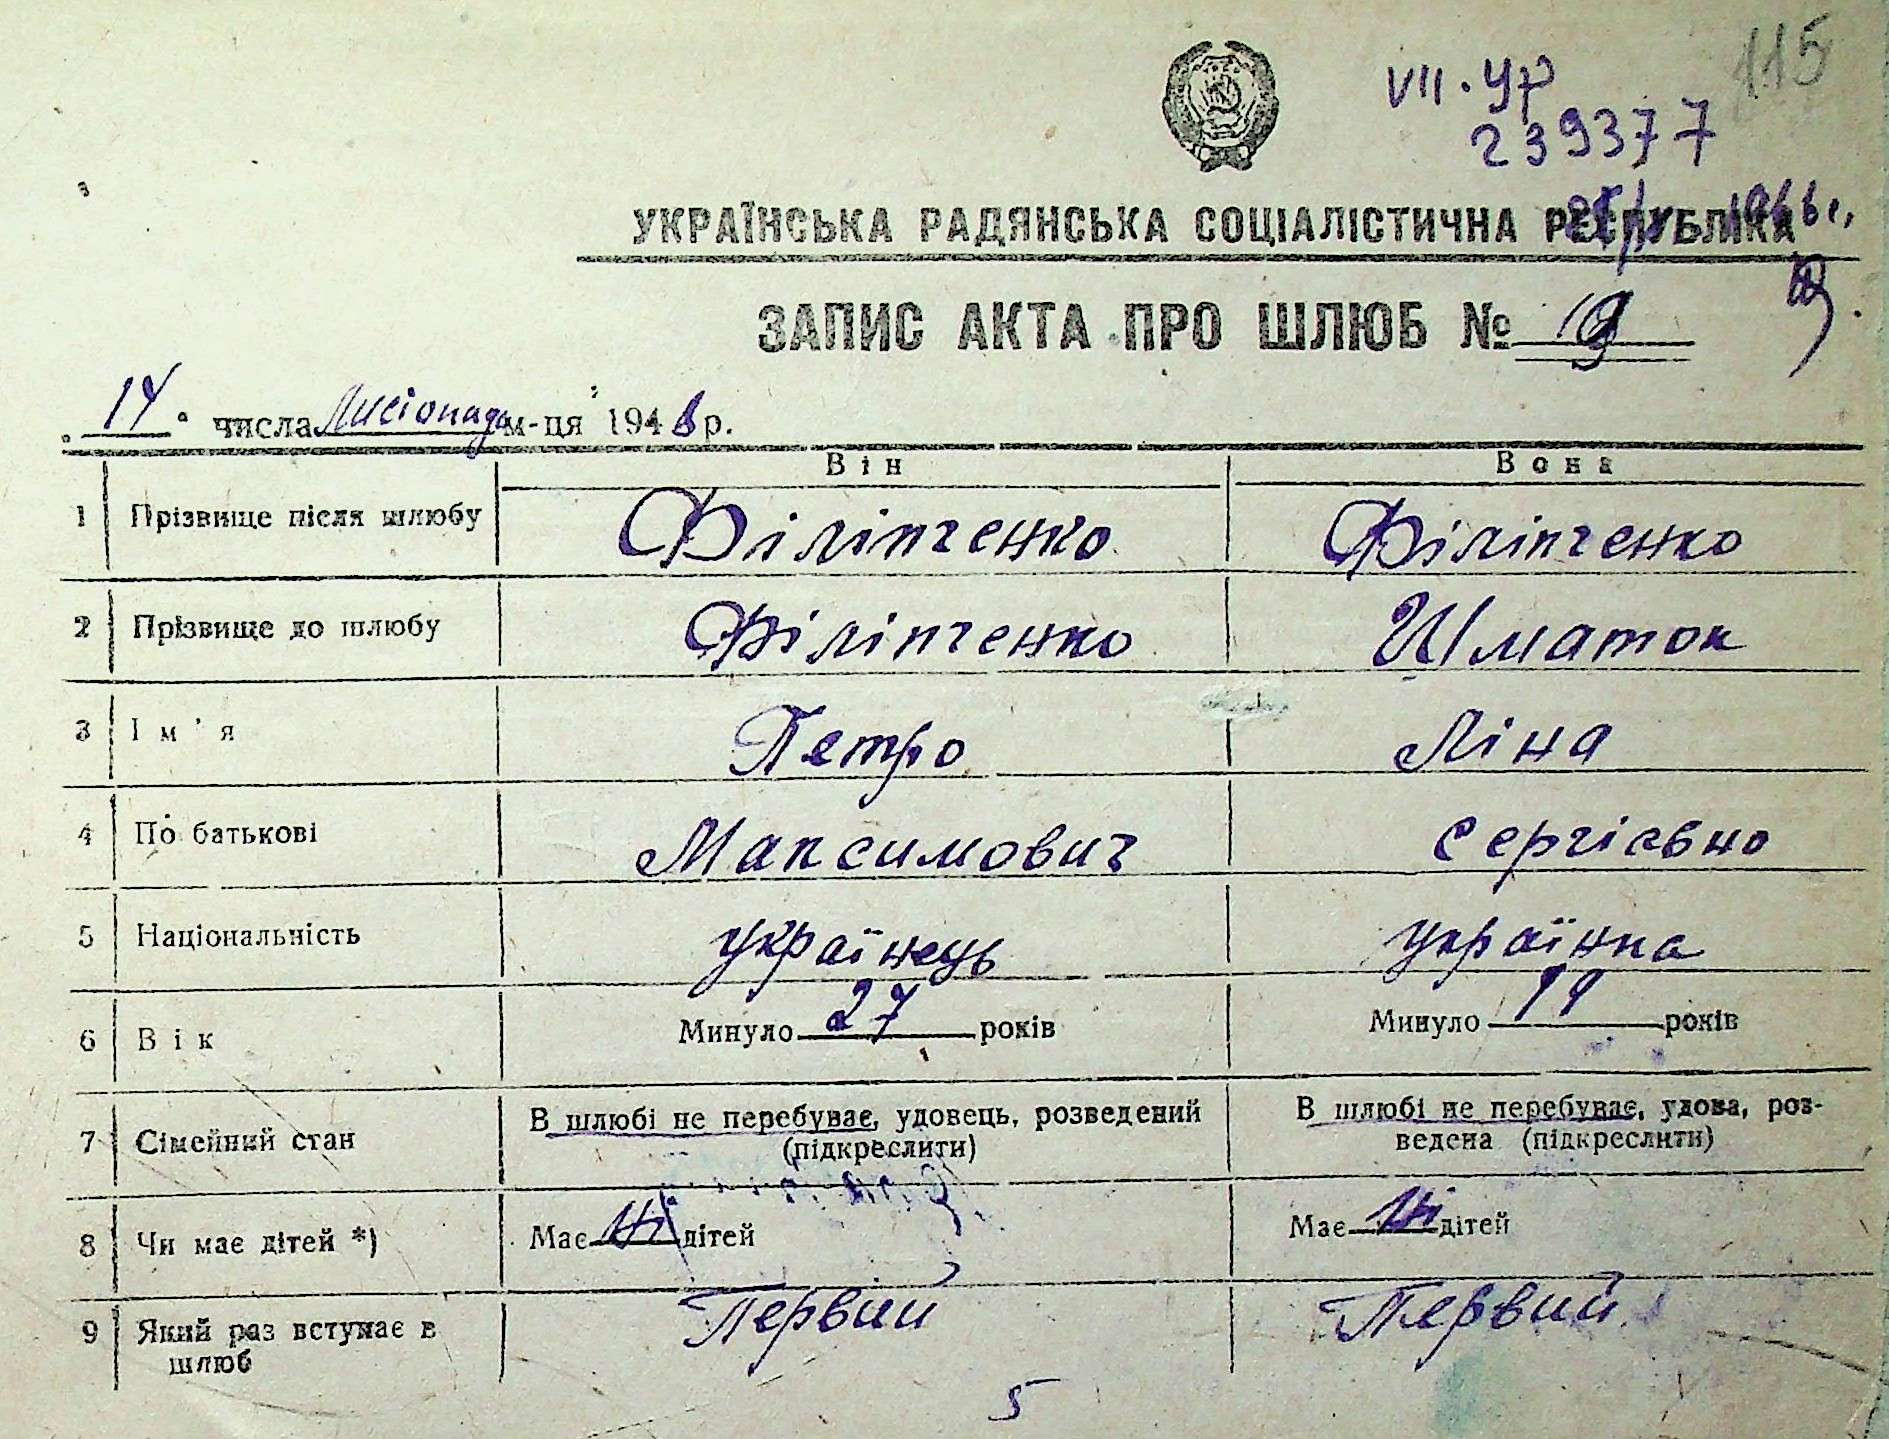 115
VII. ур
239377
УКРАЇНСЬКА РАДЯНСЬКА СОЦІАЛІСТИЧНА РЕСПУБЛІКА
ЗАПИС АКТА ПРО ШЛЮБ №
14 числа Листопада м-ця 1948 р.
Він Вона
1 Прізвище після шлюбу Філіпченко Філіпченко
2 Прізвище до шлюбу Філіпченко Шматок
3 Ім'я Петро Ліна
4 По батькові Максимович Сергієвно
5 Національність українець українка
6 Вік Минуло 27 років Минуло 19 років
7 Сімейний стан В шлюбі не перебуває, удовець, розведений (підкреслити) В шлюбі не перебуває, удова, роз-
ведена (підкреслити)
8 Чи має дітей *) Має ні дітей Має ні дітей
9 Який раз вступає в шлюб Первий Первий
5